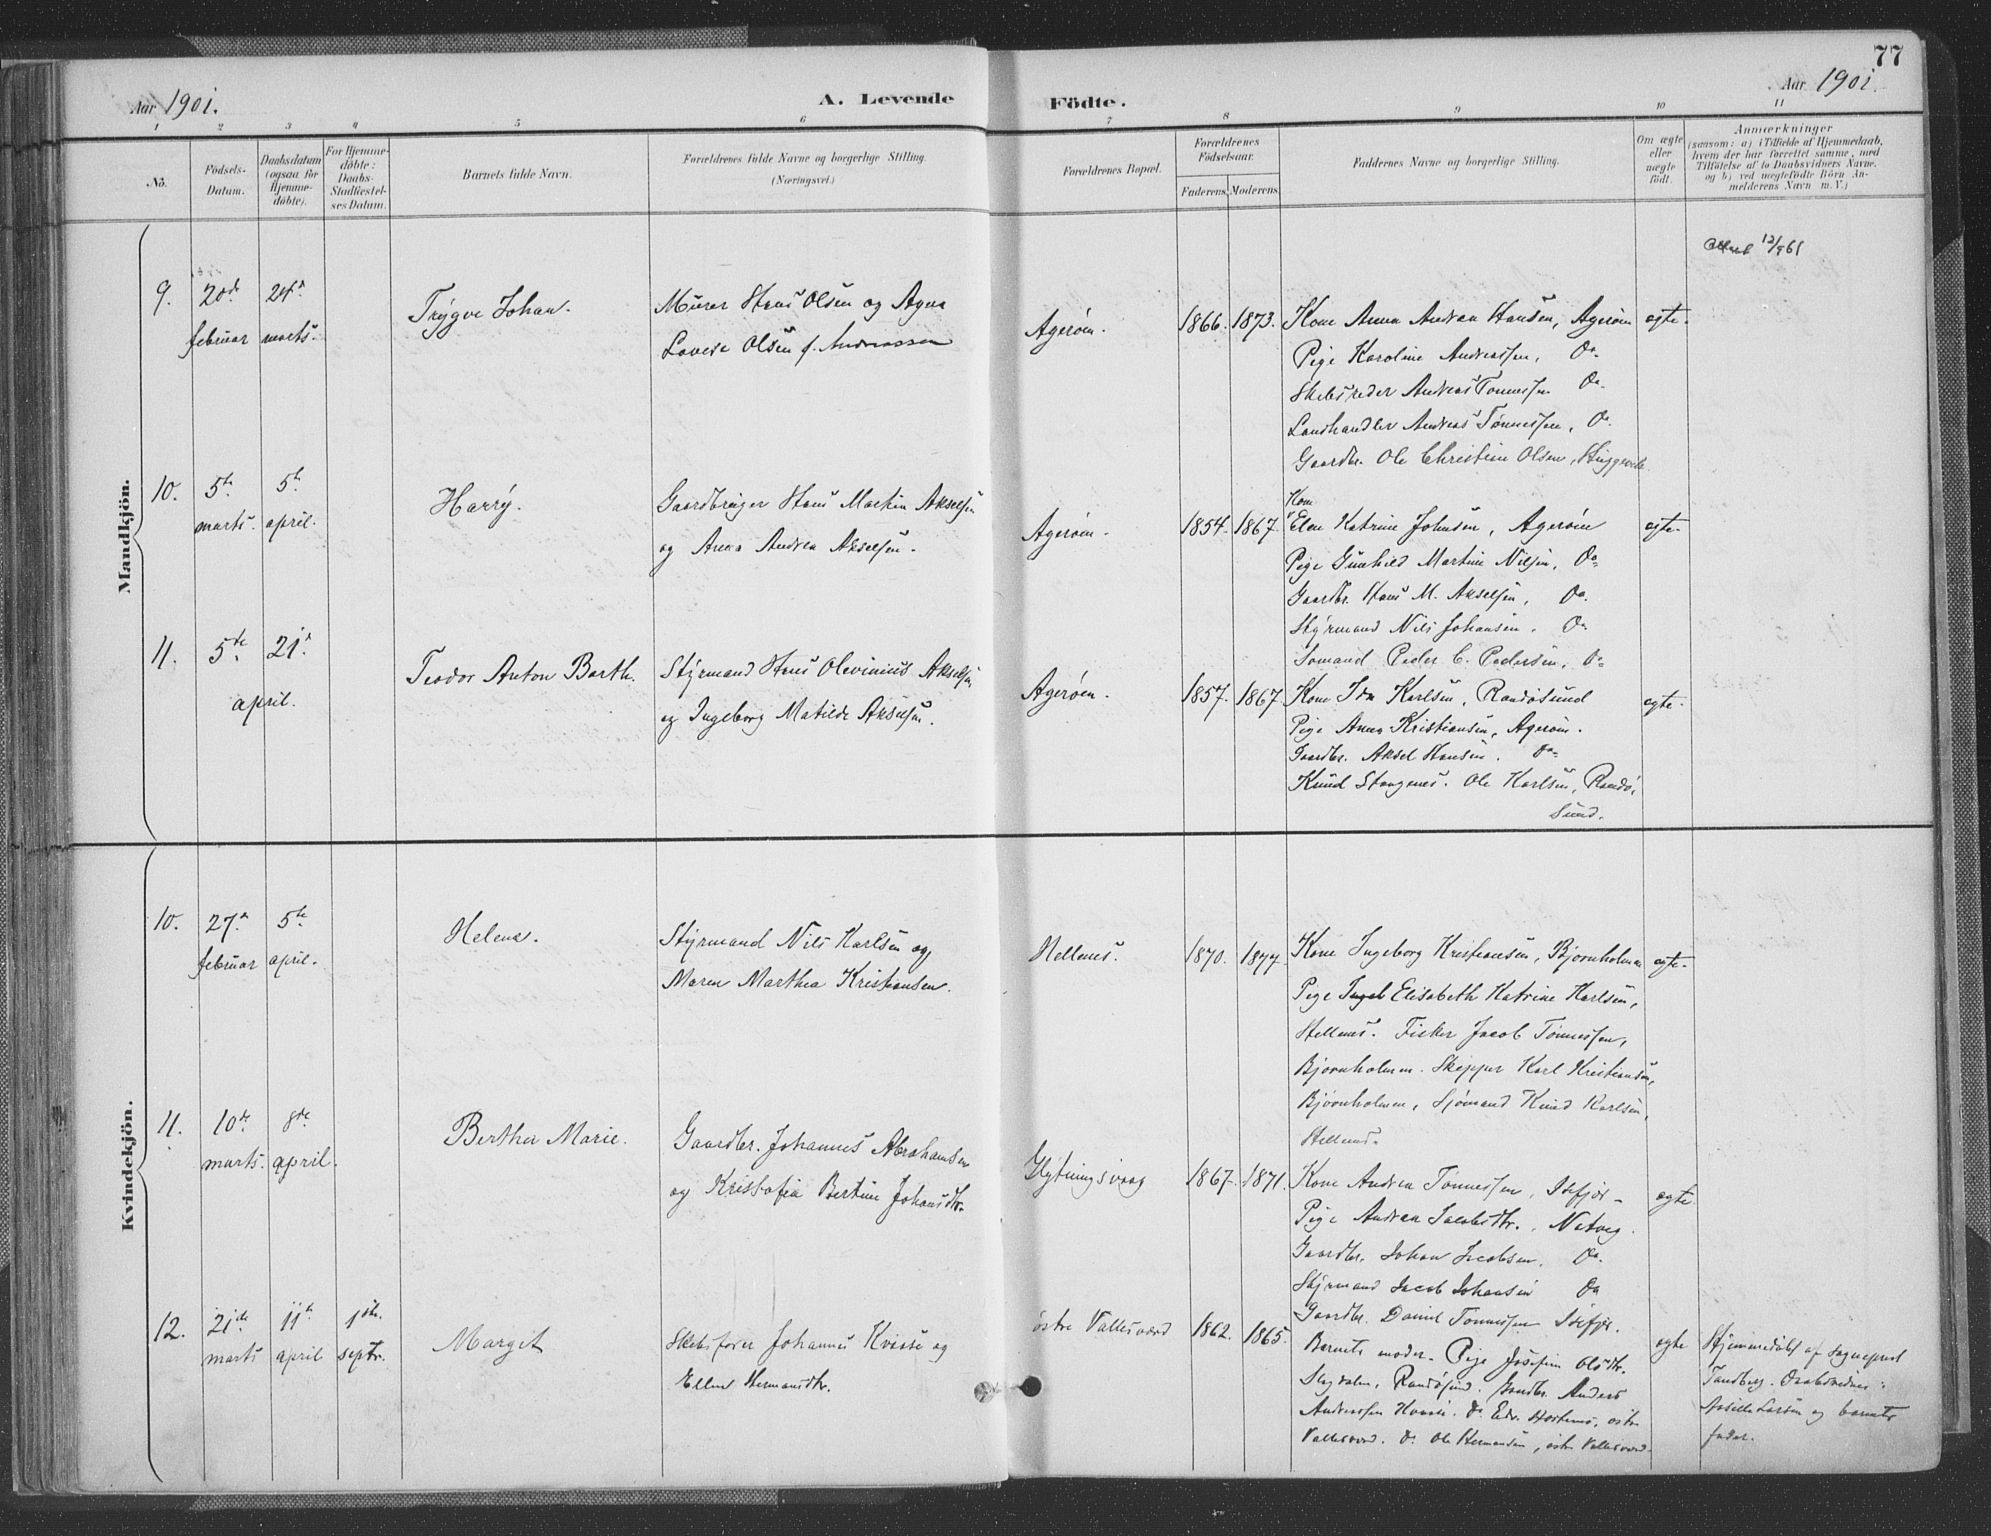 77
Aar 1901.
A. Levende
Födte.
Aar 1901.
1 2 3 4 5 6 7 8 9 10 11
No.
Födsels-
Datum.
Daabsdatum
(ogsaa for
Hjemme-
döbte).
For Hjemme-
döbte:
Daabs-
Stadfæstel-
ses Datum.
Barnets fulde Navn.
Forældrenes fulde Navne og borgerlige Stilling.
(Næringsvei.)
Forældrenes Bopæl.
Forældrenes
Födselsaar.
Faderens. Moderens.
Faddernes Navne og borgerlige Stilling.
Om ægte
eller
uægte
födt.
Anmærkninger
(saasom: a) i Tilfælde af Hjemmedaab,
hvem der har forrettet samme, med
Tilföielse af to Daabsvidners Navne,
og b) ved uegtefödte Börn An-
melderens Navn m. V.)
Mandkjön.
12/9 61
9. 20de februar 24de marts.
Trygve Johan.
Murer Hans Olsen og Agna
Lovise Olsen f. Andreassen
Agerøen.
1866. 1873.
Kone Anna Andrea Hansen, Agerøen
Pige Karoline Andreassen, Do.
Skibsreder Andreas Tønnessen Do.
Landhandler Andreas Tønnessen, Do.
Gaardbr. Ole Christian Olsen,
egte.
10. 5te marts. 5te april.
Harry.
Gaardbruger Hans Martin Akselsen
og Anna Andrea Akselsen.
Agerøen.
1854. 1867.
Kone
Elen Katrine Johnsen, Agerøen
Pige Gunhild Martine Nilsen, Do.
Gaardbr. Hans M. Akselsen, Do.
Styrmand Nils Johansen. Do.
Sømand Peder C. Pedersen, Do.
egte.
11. 5te 21de
april.
Teodor Anton Barth.
Styrmand Hans Olevinius Akselsen
og Ingeborg Matilde Akselsen.
Agerøen.
1857. 1867.
Kone Ida Karlsen, Randøsund
Pige Anna Kristiansen, Agerøen.
Gaardbr. Aksel Hansen. Do.
Knud Stangenes. Ole Karlsen, Randø-
sund.
egte.
Kvindekjön.
10. 27de februar 5te april.
Helena.
Styrmand Nils Karlsen og
Maren Marthea Kristiansen.
Hellenes.
1870. 1877.
Kone Ingeborg Kristiansen, Bjørnholmen
Pige Elisabeth Katrine Karlsen,
Hellenes. Fisker Jacob Tønnessen,
Bjørnholmen. Skipper Karl Kristiansen,
Bjørnholmen, Sjømand Knud Karlsen,
Hellenes.
egte.
11. 10de marts. 8de april.
Berthea Marie.
Gaardbr. Johannes Abrahamsen
og Krissofia Bertine Johansdtr.
1867. 1871.
Kone Andrea Tønnessen, Isefjær.
Pige Andrea Jacobsdtr., Natveg.
Gaardbr. Johan Jacobsen. Do.
Styrmand Jacob Johansen Do
Gaardbr. Daniel Tønnessen Isefjær.
egte
12. 21de marts 11te april 1ste septr.
Margit
Skibsfører Johannes Kvaase og
Ellen Hermansdtr.
østre Vallesværd
1862. 1865.
Barnets moder. Pige Josefine Olsdtr.
Randøsund. Gaardbr. Anders
Andreassen Do
Vallesværd. Do. Ole Hermansen, østre Vallesværd.
egte
Hjemmedøbt af Sogneprest
Tandberg. Daabsvidner:
Larsen og barnets
fader.